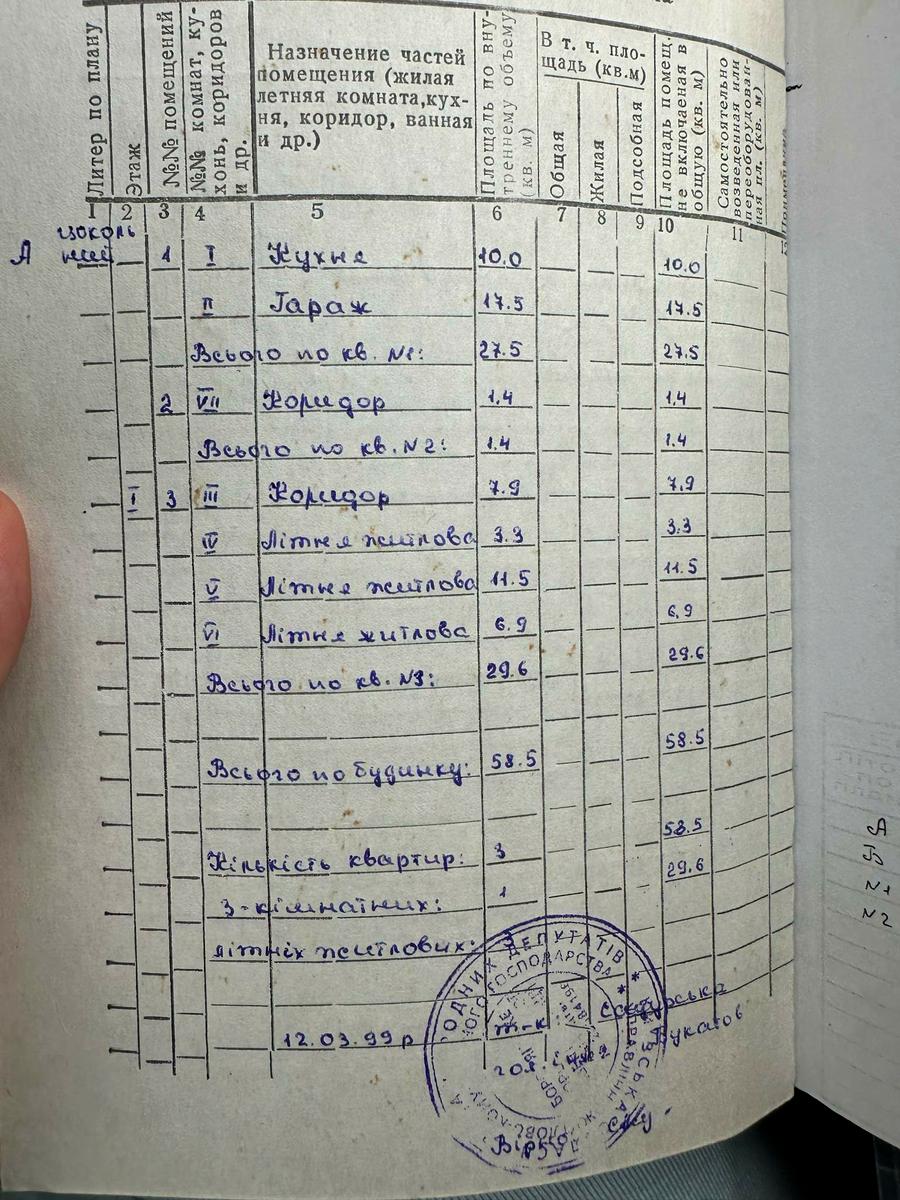 Литер по плану
Этаж
№№ помещений
№№ комнат, ку-
хонь, коридоров
и др.
Назначение частей
помещения (жилая
летняя комната,кух-
ня, коридор, ванная
и др.)
Площадь по вну-
треннему объему
(кв. м)
В т. ч. пло-
щадь (кв.м)
Общая
Жилая
Подсобная
Площадь помещ.
не включаеная в
общую (кв. м)
Самостоятельно
возведенная или
переоборудован-
ная пл. (кв. м)
1 2 3 4 5 6 7 8 9 10 11
цоколь
А ний — 1 I Кухня 10.0 10.0
II Гараж 17.5 17.5
Всього по кв. №1: 27.5 27.5
2 VII Коридор 1.4 1.4
Всього по кв. N2: 1.4 1.4
I 3 III Коридор 7.9 7.9
IV Літня житлова 3.3 3.3
V Літня житлова 11.5 11.5
VI Літня житлова 6.9 6.9
Всього по кв. N3: 29.6 29.6
Всього по будинку: 58.5 58.5
58.5
Кількість квартир: 3 29.6
3-кімнатних: 1
літніх житлових: 3
12.03.99 р т-к
ОДНИХ ДЕПУТАТІВ
НОГО ГОСПОДАРСТВА
А
Б
N1
N2